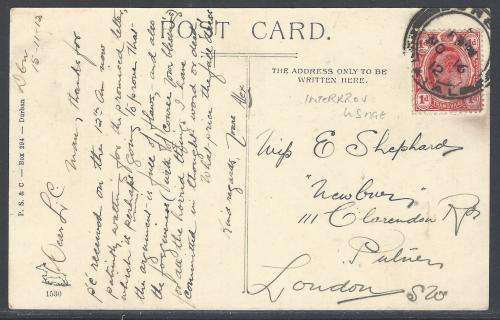 POST CARD.
THE ADDRESS ONLY TO BE
WRITTEN HERE.
INTERPROV
USAGE
Miss E Shephard
"Newbury"
111 Clarendon Rd
Putney
London SW
1d 1d
P. S & C — Box 294 — Durban
1530
Dbn
15-11-12
Dear L.C.
Many thanks for
PC received on the 12th. Am now
patiently waiting for the promised letter,
which is perhaps going to prove that
the argument is full of flaws, and also
the forgiveness (with of course your blessing)
for all the horrid things I have
committed in thought word or deed.
What price the
Kind regards, Yours Alex